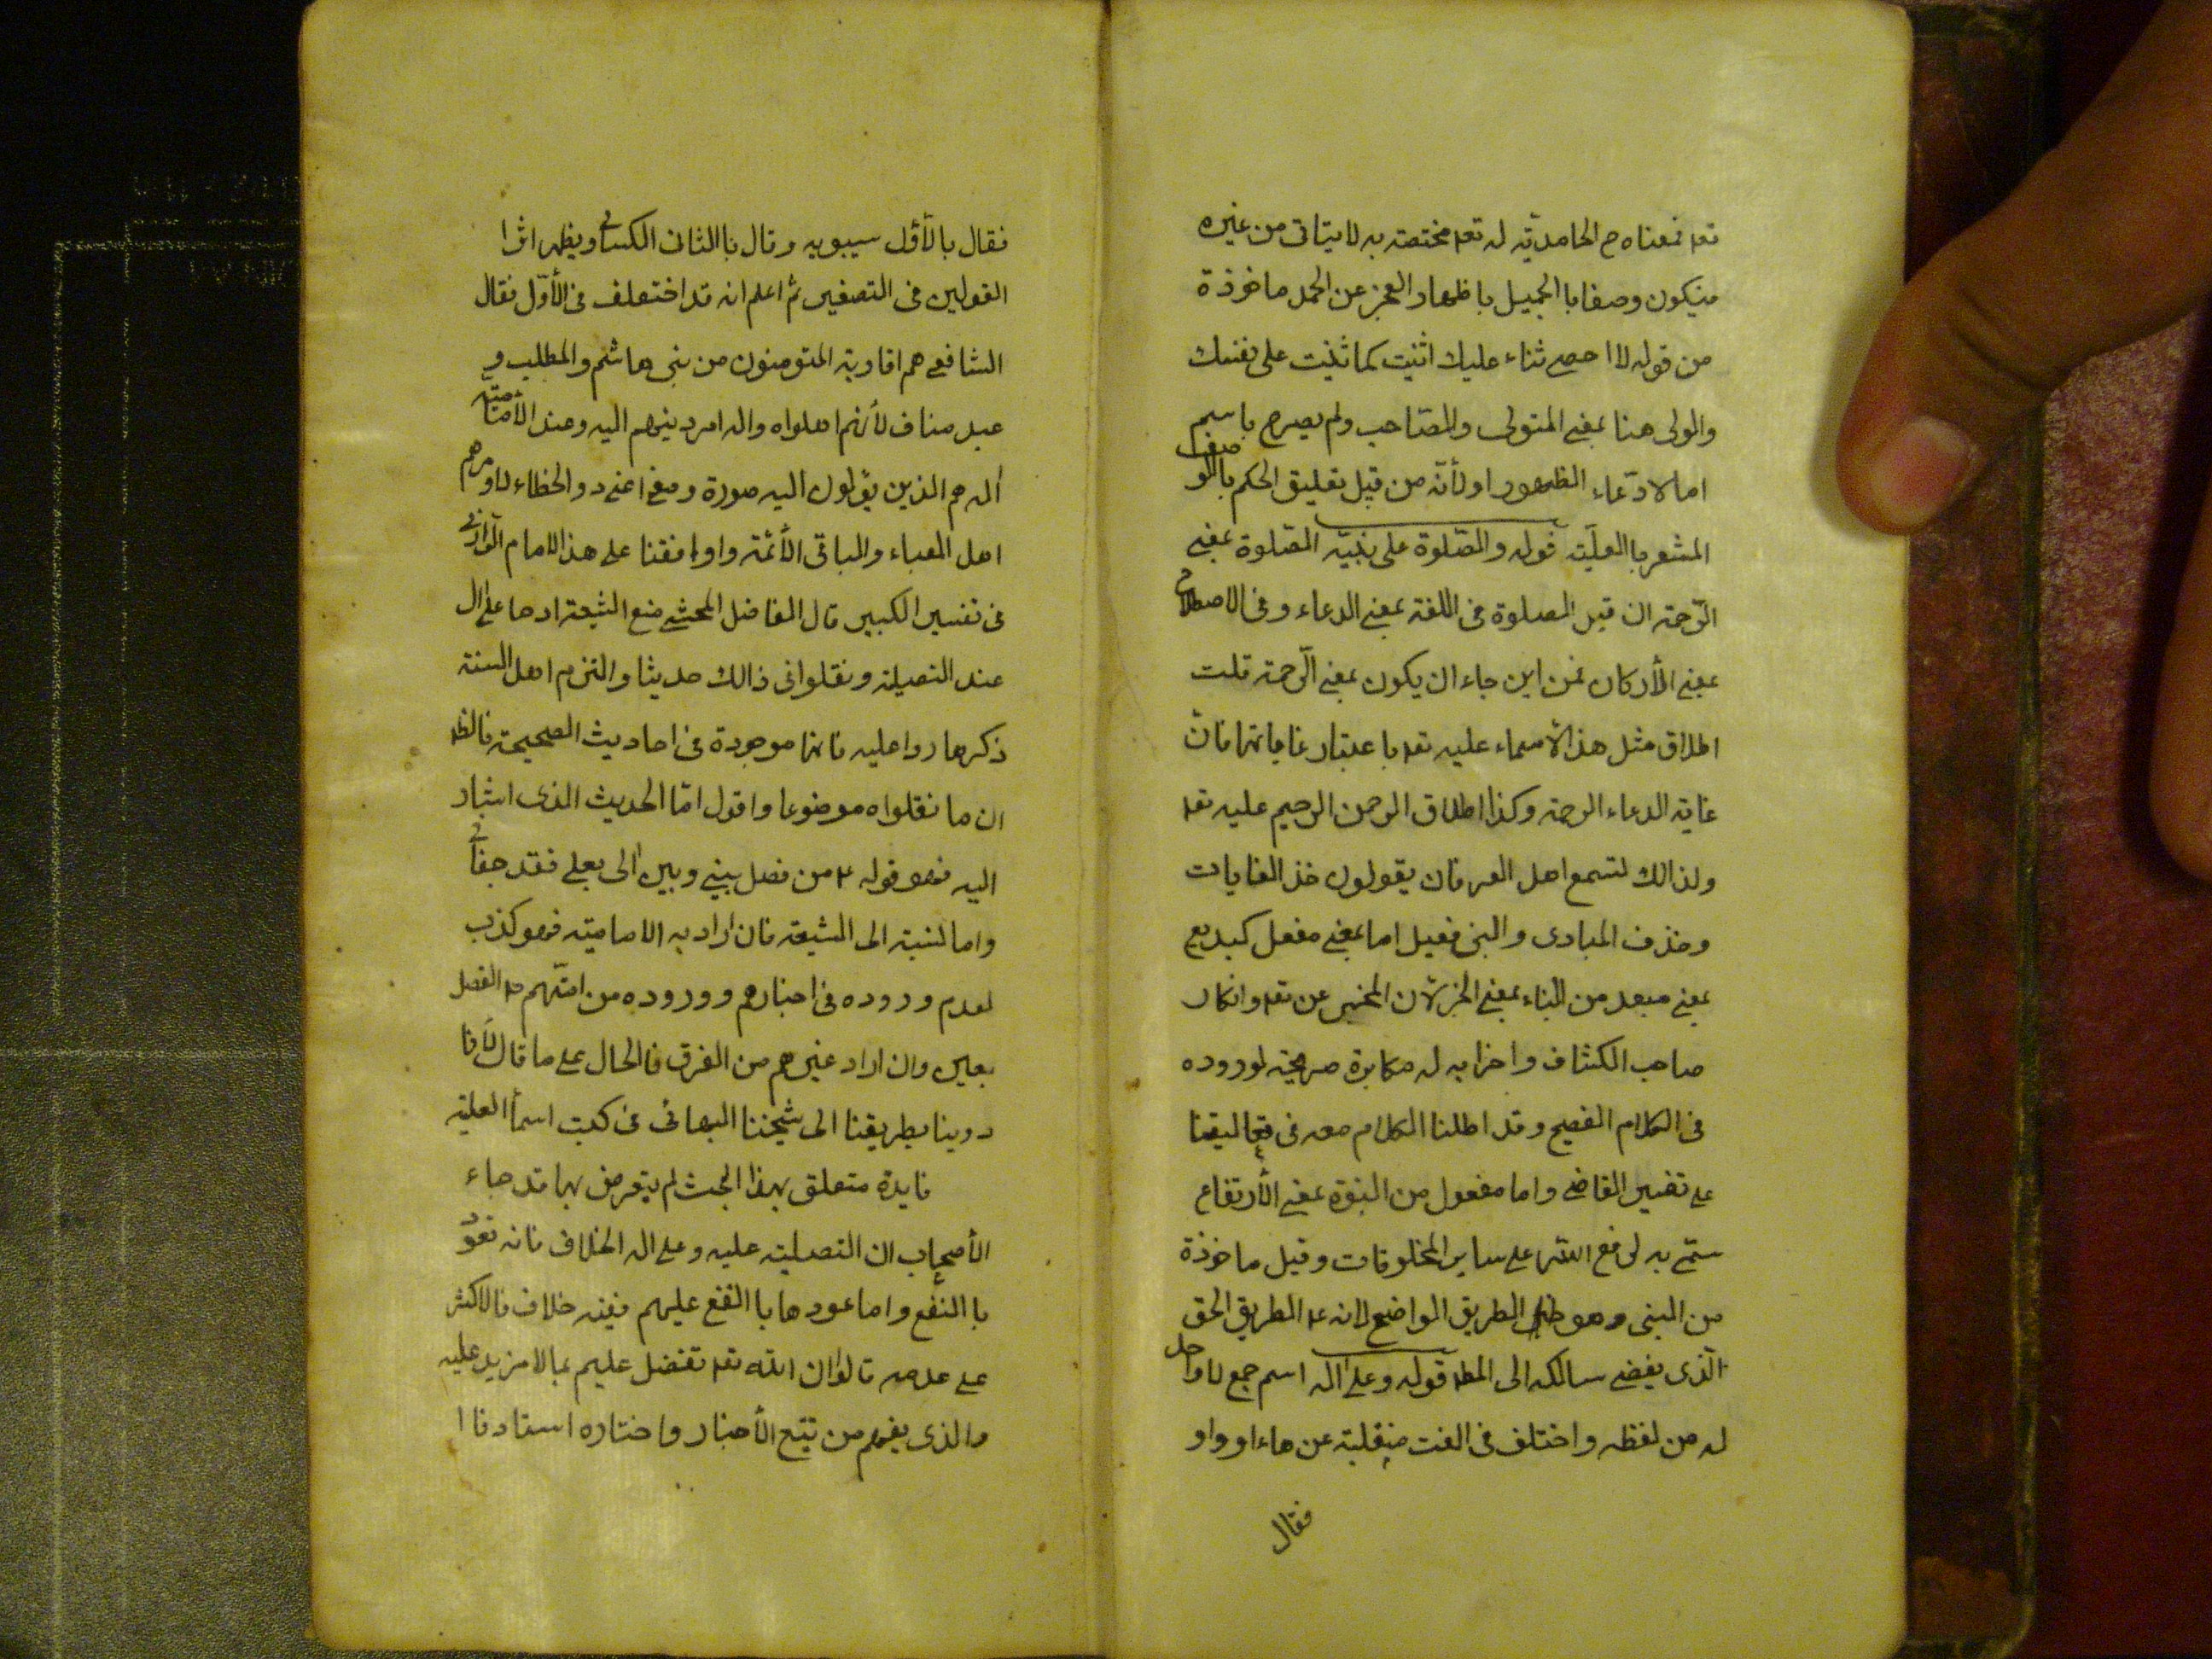 تعه فمعناه ح الحامديّه له تعه مختصة به لا يتاتى من غيره
فيكون وصفا باالجميل باظهار العجز عن الحمد ماخوذة
من قوله لا احصى ثناء عليك اثنيت كما ثنيت على نفسك
والولى هنا بمعنى المتولى والصّاحب ولم يصرح باسمه
اما لادّعاء الظهور او لأنّه من قبل تعليق الحكم بالوصف
المشعر باالعليّة قوله والصّلوة على نبيّه الصّلوة بمعنى
الرّحمة ان قيل الصلوة فى اللغة بمعنى الدعاء وفى الاصطلاح
بمعنى الأركان فمن اين جاء ان يكون بمعنى الرّحمة قلت
اطلاق مثل هذا الأسماء عليه تعه باعتبار غاياتها فانّ
غاية الدعاء الرحمة وكذا اطلاق الرحمن الرحيم عليه تعه
ولذالك لتسمع اهل العرفان يقولون خذ الغايات
وخذف المبادى والنبى فعيل اما بمعنى مفعل كبديع
بمعنى مبعد من النباء بمعنى الخبر لأن المخبر عن تعه وانكار
صاحب الكشاف واخرابه له مكابرة صريحة لوروده
فى الكلام الفصيح وقد اطلنا الكلام معه فى تعاليقنا
على تفسير القاضى واما مفعول من النبوّة بمعنى الأرتفاع
سمّى به لرفع الله على ساير المخلوقات وقيل ماخوذة
من النبى وهو الطريق الواضح لانه عه الطريق الحق
الّذى يفضى سالكه الى المطه قوله وعلى اله اسم جمع لا واحد
له من لفظه واختلف فى الفت منقلبة عن هاء او واو
فقال
فقال بالأوّل سيبويه وقال باالثانى الكسائى ويظهر اثرا
القولين فى التصغير ثم اعلم انه قد اختعلف فى الأوّل فقال
الشافعى هم اقاربه المتومنون من بنى هاشم والمطلب و
عبد مناف لأنهم اهلواه واله امر دينهم اليه وعند الأماميّة
أله هم الذين يؤلون أليه صورة ومعى اعنى دو الخطاء لا ومرهم
اهل العباء والباقى الأئمّة واوافقنا على هذا الامام الرّازى
فى تفسير الكبير قال الفاضل المحشى منع الشيعة ادها على ال
عند التصيلة ونقلوا فى ذالك حديثا والتزم اهل السنة
ذكرها ردا عليه فانها موجودة فى احاديث الصحيحة فالظه
ان ما نقلواه موضوعا واقول امّا الحديث الذى اشار
اليه فهو قوله ع من فصل بينى وبين الى بعلى فقد جفانى
واما لنسبة الى الشيعة فان اراد به الاماميّة فهو كذب
لعدم وروده فى اخبارهم ووروده من امّتهم حه الفصل
بعلى وان اراد غيرهم من الفرق فالحال على ما قال لأنا
روينا بطريقنا الى شيخنا البهائى فى كتب اسمأ العلية
فايدة متعلق بهذا البحث لم يتعرض بها قد جاء
الأصحاب ان التصليته عليه وعلى اله الخلاف فانه تعوّد
باالنفع واما عودها باالنفع عليهم ففيه خلاف فالاكثر
على عدمه قالوا ان الله تعه تفضل عليهم بمالا مزيد عليه
والذى يفهم من تتبع الأخبار واختاره استادنا ا